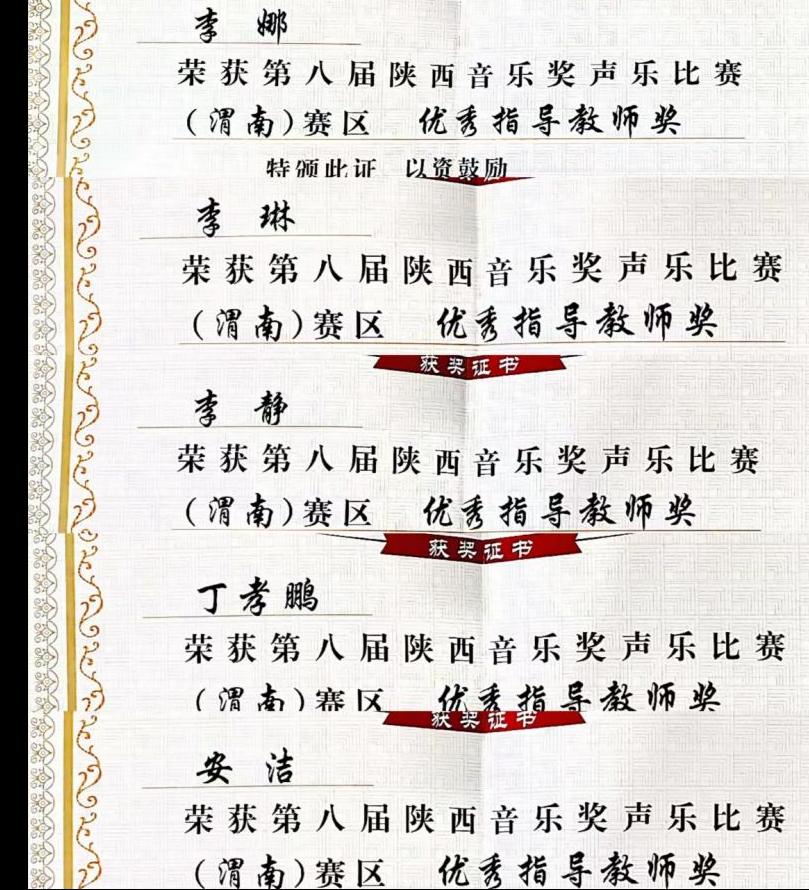 李 娜
荣获第八届陕西音乐奖声乐比赛
(渭南)赛区 优秀指导教师奖
特颁此证 以资鼓励
李 琳
荣获第八届陕西音乐奖声乐比赛
(渭南)赛区 优秀指导教师奖
获奖证书
李 静
荣获第八届陕西音乐奖声乐比赛
(渭南)赛区 优秀指导教师奖
获奖证书
丁孝鹏
荣获第八届陕西音乐奖声乐比赛
(渭南)赛区 优秀指导教师奖
获奖证书
安 洁
荣获第八届陕西音乐奖声乐比赛
(渭南)赛区 优秀指导教师奖